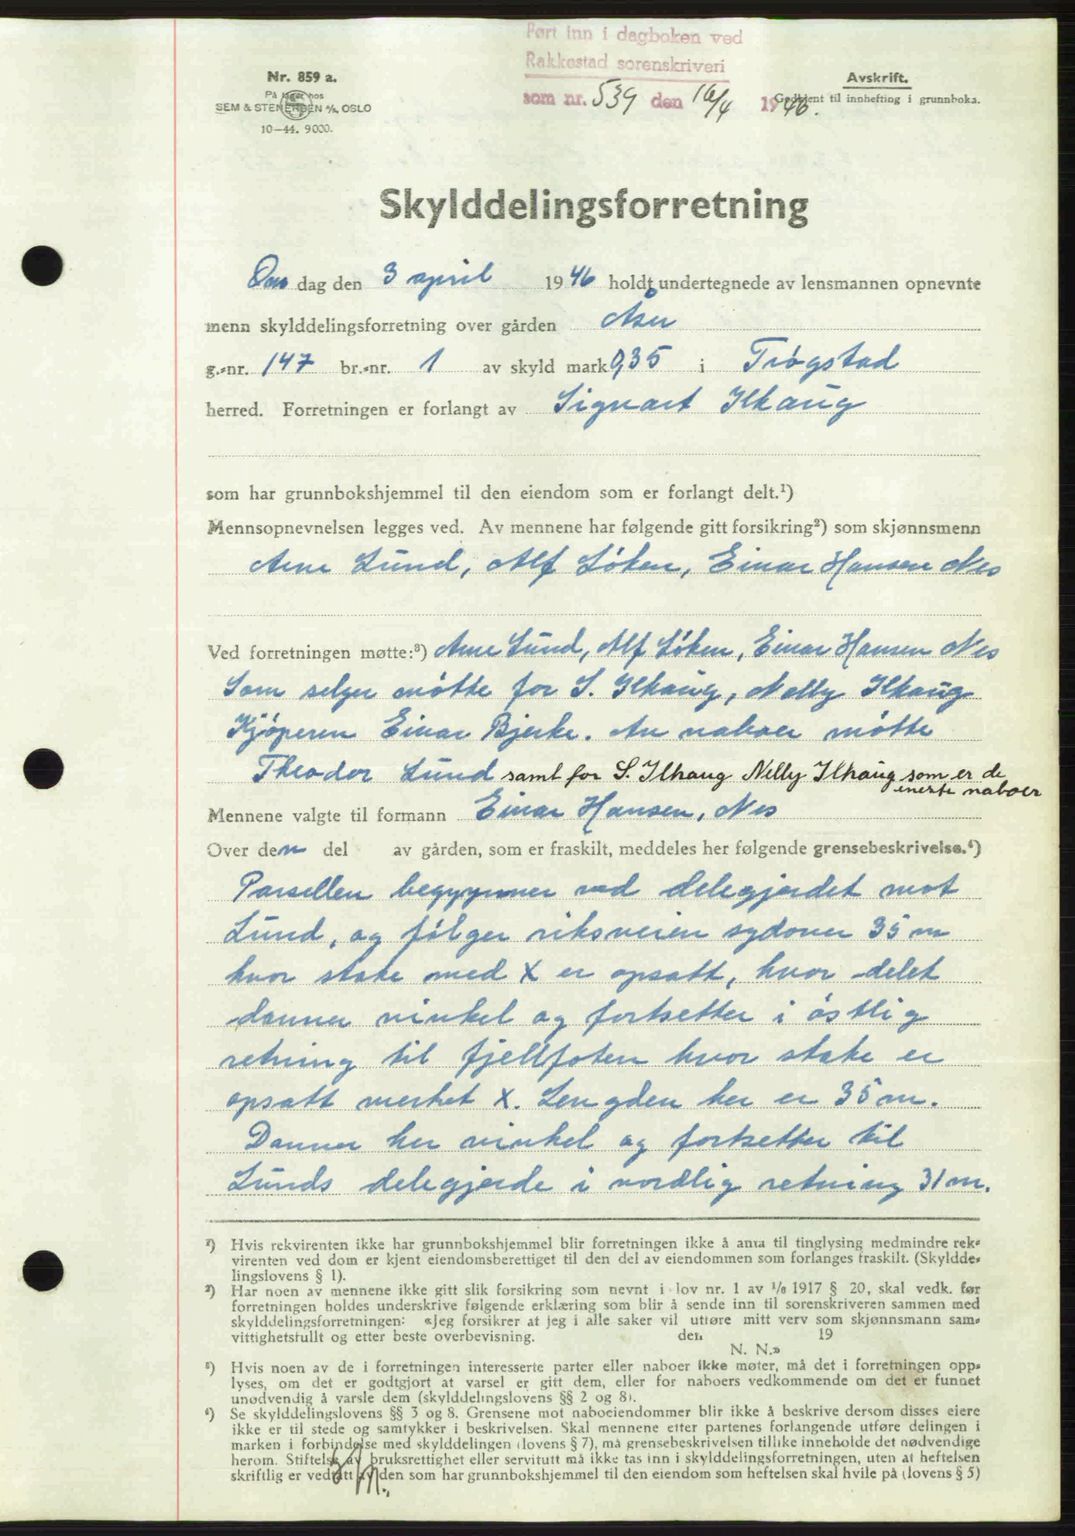 Ført inn i dagboken ved
Rakkestad sorenskriveri
som nr. 539 den 16/4 1946.
Nr. 859 a.
På lager hos
SEM & STENERSEN A/S, OSLO
10—44. 9000.
Avskrift.
Godkjent til innhefting i grunnboka.
Skylddelingsforretning
Ons dag den 3 april 1946 holdt undertegnede av lensmannen opnevnte
menn skylddelingsforretning over gården Åser
g.-nr. 147 br.-nr. 1 av skyld mark 0,35 i Trøgstad
herred. Forretningen er forlangt av Sigvart Ilkaug
som har grunnbokshjemmel til den eiendom som er forlangt delt.¹)
Mennsopnevnelsen legges ved. Av mennene har følgende gitt forsikring²) som skjønnsmenn
Arne Lund, Alf Løken, Einar Hansen Nes
Ved forretningen møtte:³) Arne Lund, Alf Løken, Einar Hansen Nes
Som selger møtte for S. Ilkaug, Nelly Ilkaug
Kjøperen Einar Bjerke. Av naboer møtte
Theodor Lund samt for S. Ilkaug Nelly Ilkaug som er de
eneste naboer
Mennene valgte til formann Einar Hansen, Nes
Over den del av gården, som er fraskilt, meddeles her følgende grensebeskrivelse.⁴)
Parsellen begynner ved delegjerdet mot
Lund, og følger riksveien sydover 35 m
hvor stake med X er opsatt, hvor delet
danner vinkel og fortsetter i østlig
retning til fjellfoten hvor stake er
opsatt merket X. Lengden her er 35 m.
Danner her vinkel og fortsetter til
Lunds delegjerde i nordlig retning 31 m.
¹) Hvis rekvirenten ikke har grunnbokshjemmel blir forretningen ikke å anta til tinglysing medmindre rek-
virenten ved dom er kjent eiendomsberettiget til den del av eiendommen som forlanges fraskilt. (Skyldde-
lingslovens § 1).
²) Har noen av mennene ikke gitt slik forsikring som nevnt i lov nr. 1 av 1/8 1917 § 20, skal vedk. før
forretningen holdes underskrive følgende erklæring som blir å sende inn til sorenskriveren sammen med
skylddelingsforretningen: «Jeg forsikrer at jeg i alle saker vil utføre mitt verv som skjønnsmann sam-
vittighetsfullt og etter beste overbevisning. den 19
N. N.»
³) Hvis noen av de i forretningen interesserte parter eller naboer ikke møter, må det i forretningen opp-
lyses, om det er godtgjort at varsel er gitt dem, eller for naboers vedkommende om det er funnet
unødvendig å varsle dem (skylddelingslovens §§ 2 og 8).
⁴) Se skylddelingslovens §§ 3 og 8. Grensene mot naboeiendommer blir ikke å beskrive dersom disses eiere
ikke er til stede og samtykker i beskrivelsen. Skal mennene etter partenes forlangende utføre delingen i
marken i forbindelse med skylddelingen (lovens § 7), må grensebeskrivelsen tillike inneholde det nødvendige
herom. Stiftelse av bruksrettighet eller servitutt må ikke tas inn i skylddelingsforretningen, uten at heftelsen
skriftlig er vedtatt av den som har grunnbokshjemmel til den eiendom som heftelsen skal hvile på (lovens § 5)